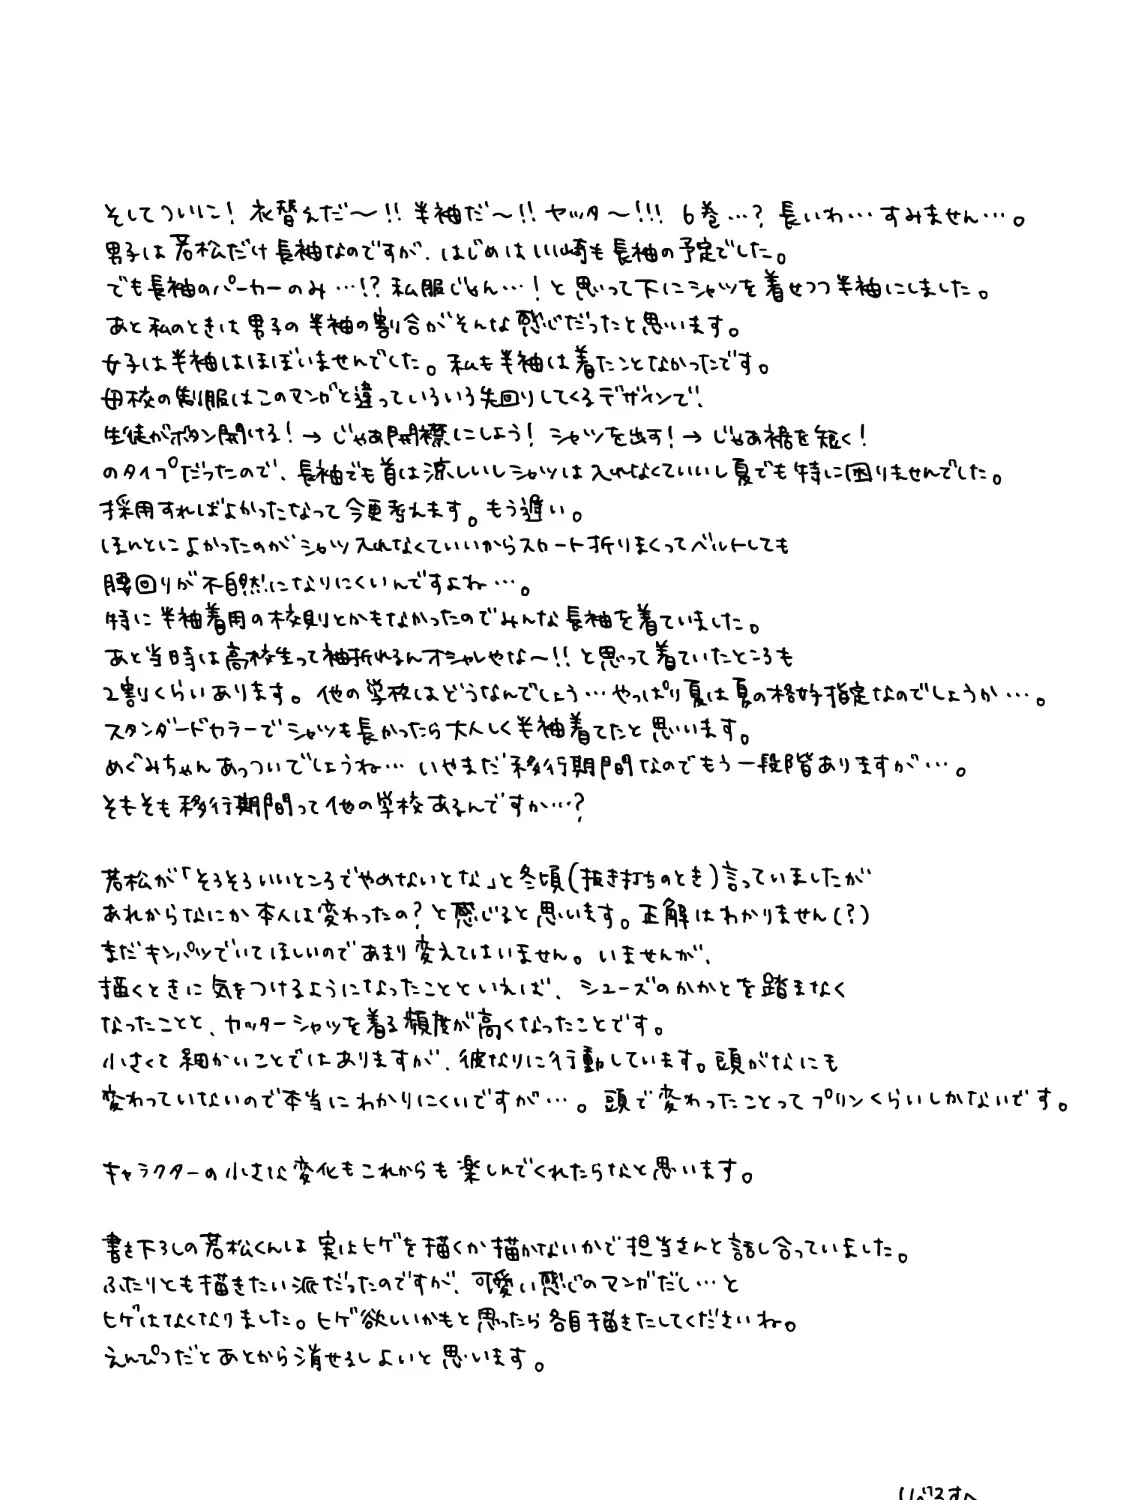 そしてついに！衣替えだ〜!!半袖だ〜!!ヤッタ〜!!! 6巻…？長いわ…すみません…。
男子は若松だけ長袖なのですが、はじめは川崎も長袖の予定でした。
でも長袖のパーカーのみ…!?私服じゃん…！と思って下にシャツを着せつつ半袖にしました。
あと私のときは男子の半袖の割合がそんな感じだったと思います。
女子は半袖はほぼいませんでした。私も半袖は着たことなかったです。
母校の制服はこのマンガと違っていろいろ先回りしてくるデザインで、
生徒がボタン開ける！→じゃあ開襟にしよう！シャツを出す！→じゃあ裾を短く！
のタイプだったので、長袖でも首は涼しいしシャツは入れなくていいし夏でも特に困りませんでした。
採用すればよかったなって今更考えます。もう遅い。
ほんとによかったのがシャツ入れなくていいからスカート折りまくってベルトしても
腰回りが不自然になりにくいんですよね…。
特に半袖着用の校則とかもなかったのでみんな長袖を着ていました。
あと当時は高校生って袖折れるんオシャレやな〜!!と思って着ていたところも
2割くらいあります。他の学校はどうなんでしょう…やっぱり夏は夏の格好指定なのでしょうか…。
スタンダードカラーでシャツも長かったら大人しく半袖着てたと思います。
めぐみちゃんあっついでしょうね…いやまだ移行期間なのでもう一段階ありますが…。
そもそも移行期間って他の学校あるんですか…？
若松が「そろそろいいところでやめないとな」と冬頃(抜き打ちのとき)言っていましたが
あれからなにか本人は変わったの？と感じると思います。正解はわかりません(？)
まだキンパツでいてほしいのであまり変えてはいません。いませんが、
描くときに気をつけるようになったことといえば、シューズのかかとを踏まなく
なったことと、カッターシャツを着る頻度が高くなったことです。
小さくて細かいことではありますが、彼なりに行動しています。頭がなにも
変わっていないので本当にわかりにくいですが…。頭で変わったことってプリンくらいしかないです。
キャラクターの小さな変化もこれからも楽しんでくれたらなと思います。
書き下ろしの若松くんは実はヒゲを描くか描かないかで担当さんと話し合っていました。
ふたりとも描きたい派だったのですが、可愛い感じのマンガだし…と
ヒゲはなくなりました。ヒゲ欲しいかもと思ったら各自描きたしてくださいね。
えんぴつだとあとから消せるしよいと思います。